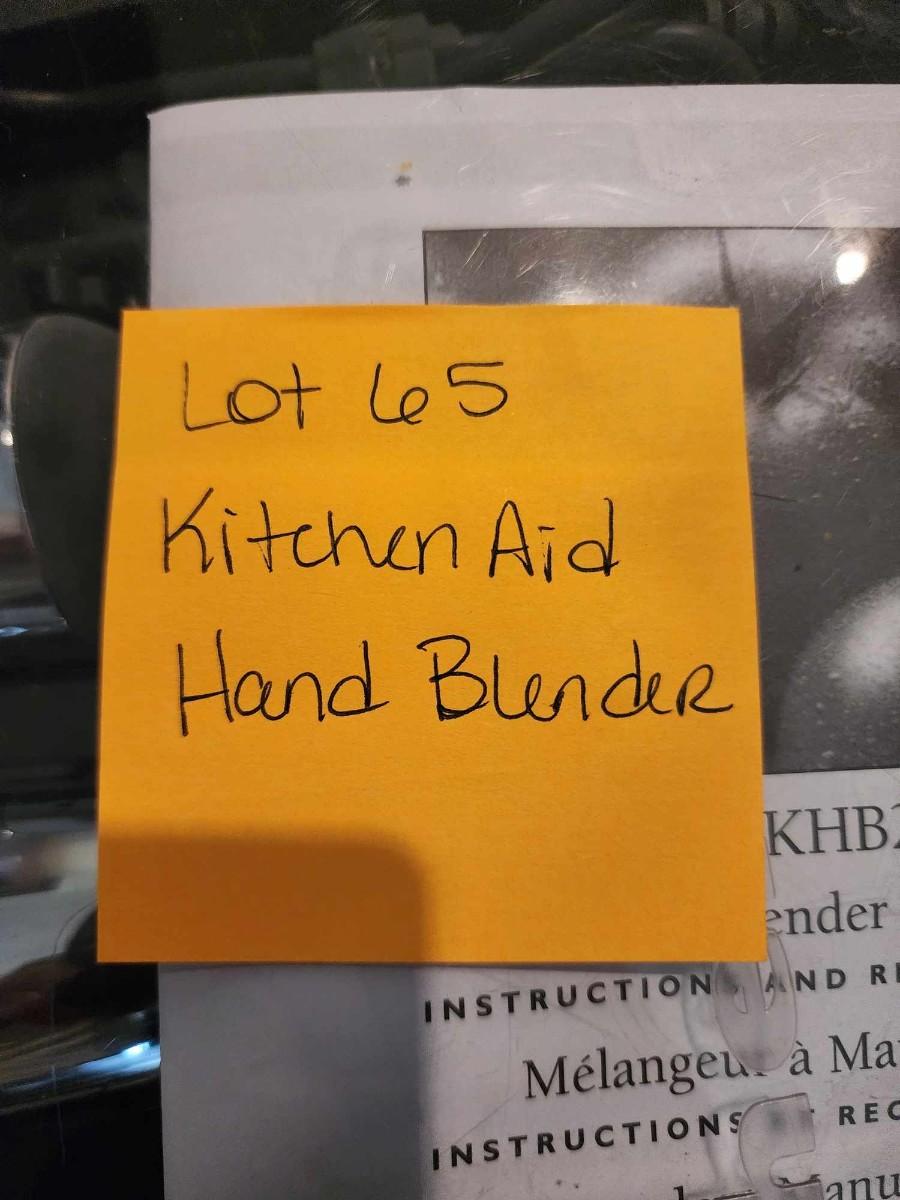 Lot 65
Kitchen Aid
Hand Blender
KHB2
ender
INSTRUCTION AND RE
Mélangeur à Ma
INSTRUCTIONS REC